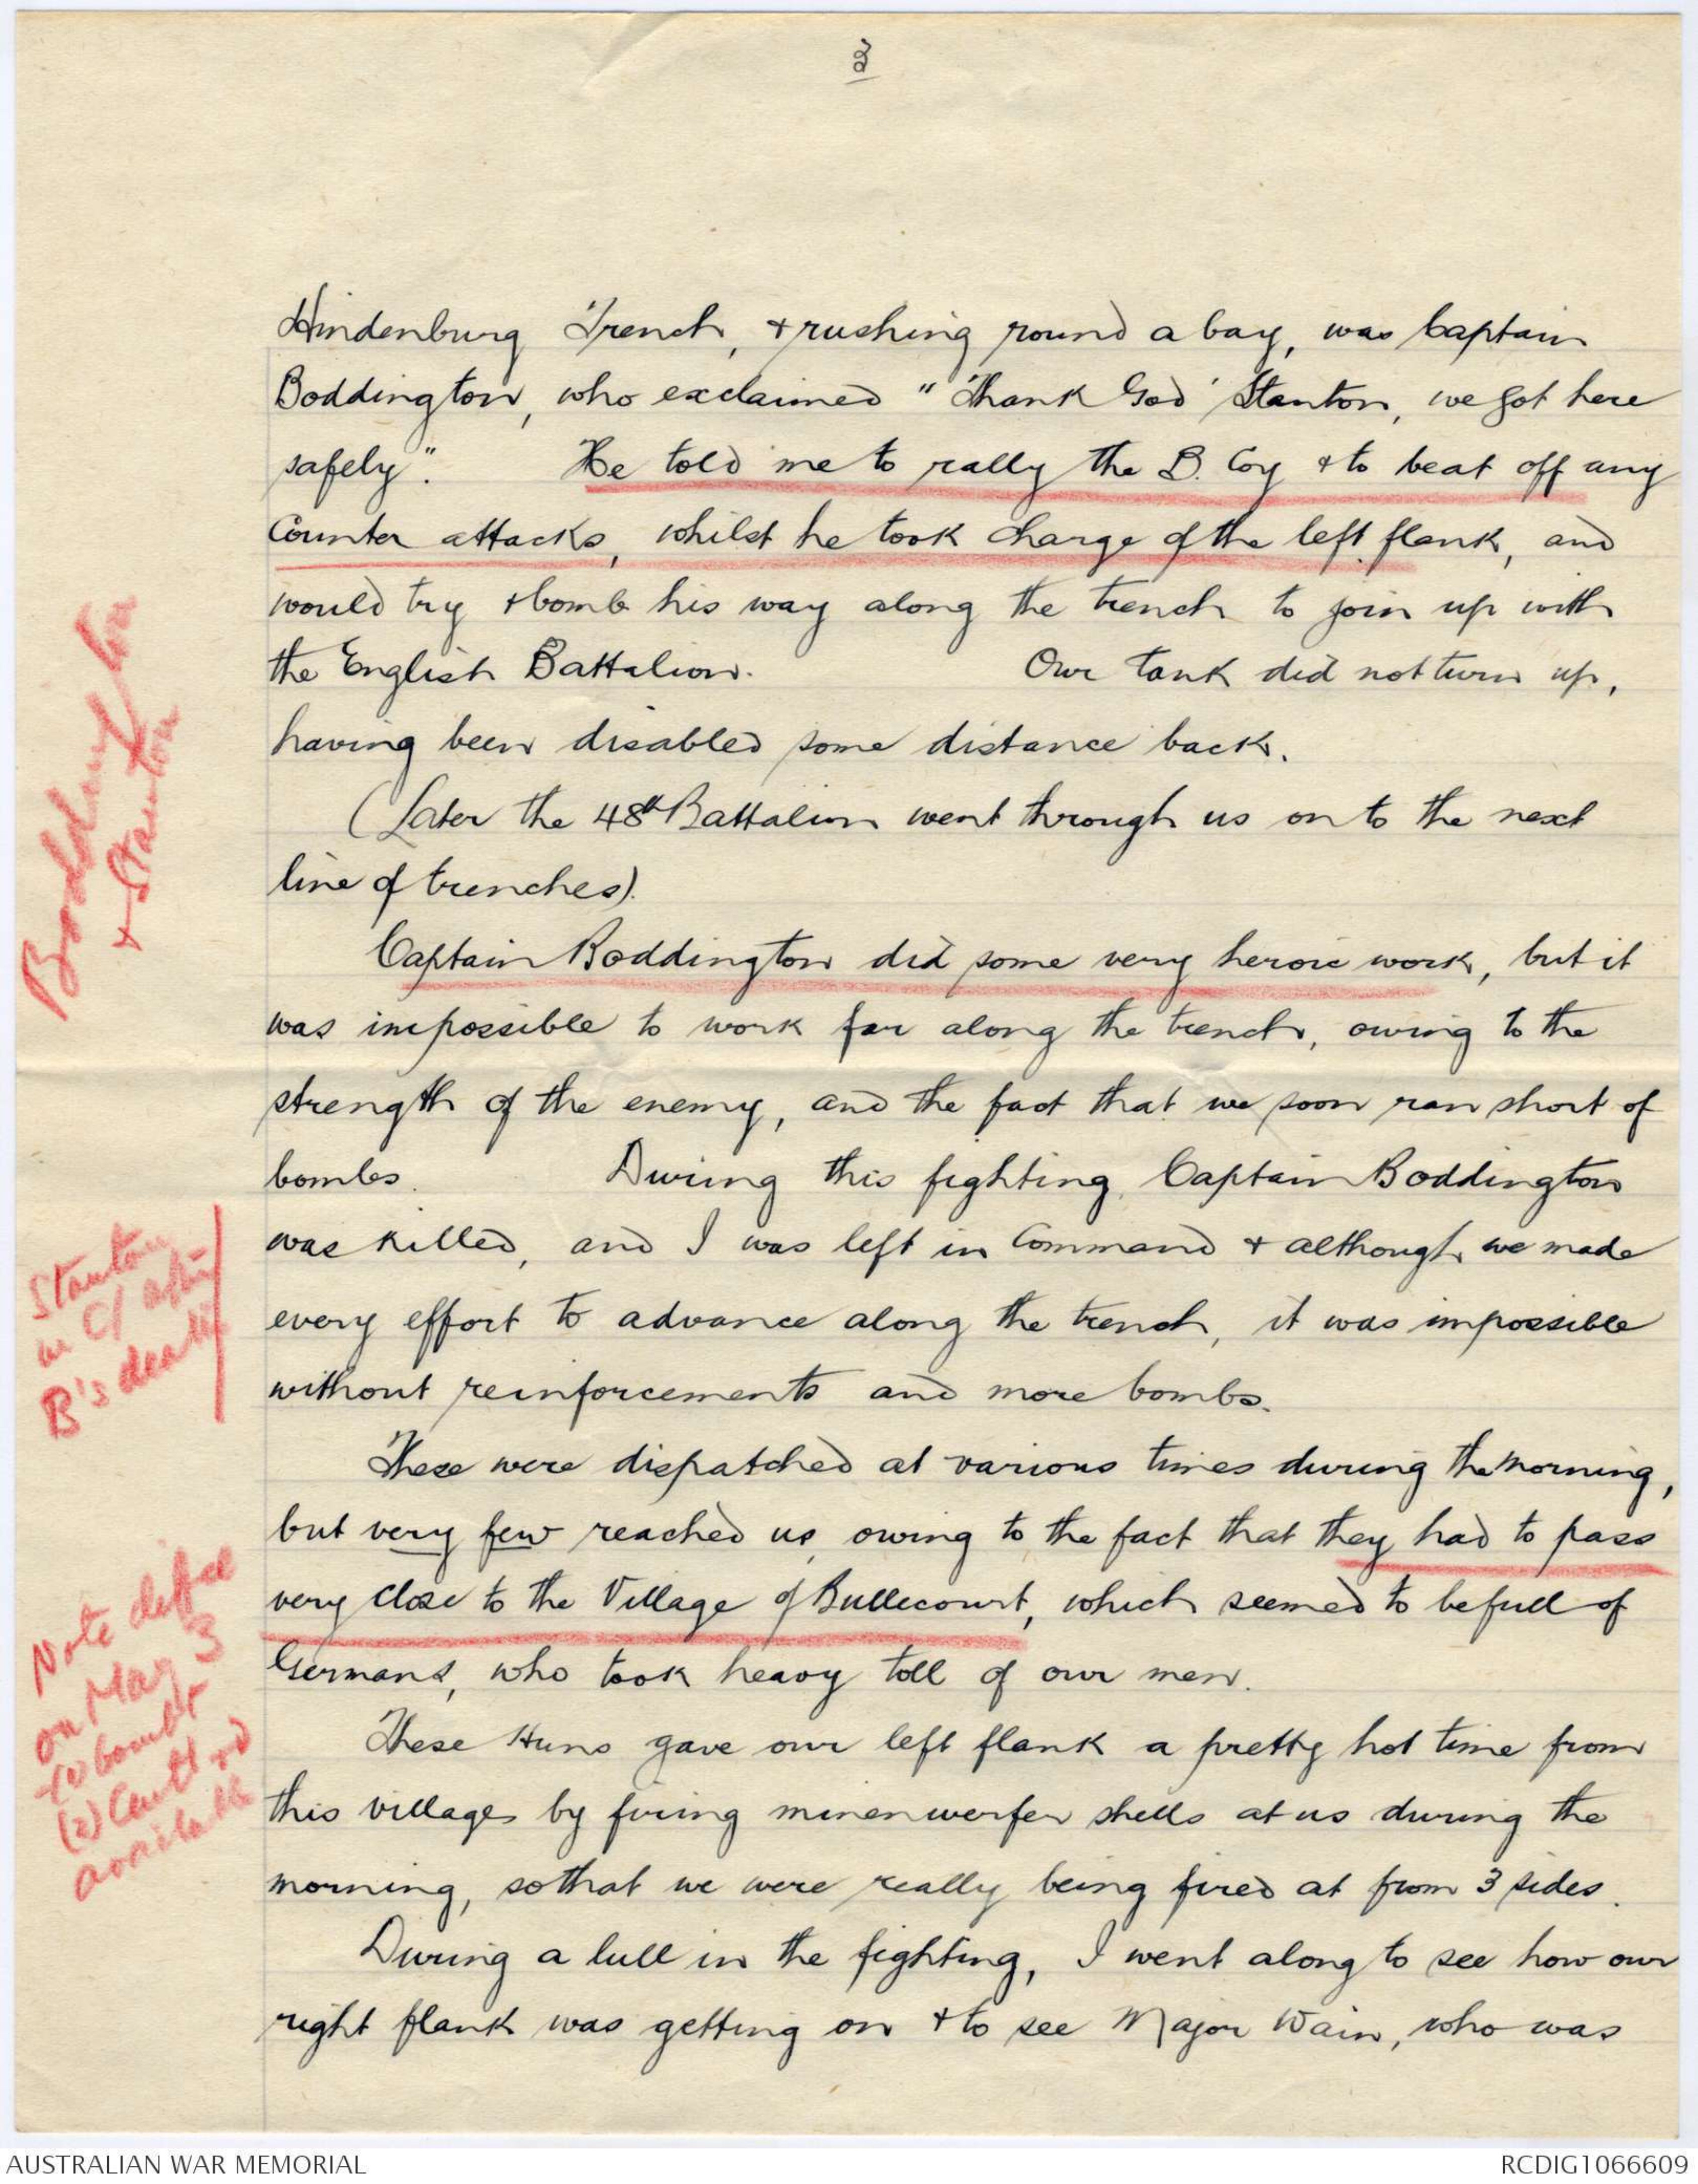 2
Hindenburg Trench, & rushing round a bay, was Captain
Boddington, who exclaimed "Thank God Stanton, we got here
safely". He told me to rally the B. Coy & to beat off any
Counter attacks, whilst he took charge of the left flank, and
would try & bomb his way along the trench to join up with
the English Battalion. Our tank did not turn up,
having been disabled some distance back.
(Later the 48th Battalion went through us on to the next
line of trenches).
Captain Boddington did some very heroic work, but it
was impossible to work far along the trench, owing to the
strength of the enemy, and the fact that we soon ran short of
bombs. During this fighting, Captain Boddington
was killed, and I was left in Command & although we made
every effort to advance along the trench, it was impossible
without reinforcements and more bombs.
These were dispatched at various times during the morning,
but very few reached us, owing to the fact that they had to pass
very close to the Village of Bullecourt, which seemed to be full of
Germans, who took heavy toll of our men.
These Huns gave our left flank a pretty hot time from
this village by firing minenwerfer shells at us during the
morning, so that we were really being fired at from 3 sides.
During a lull in the fighting, I went along to see how our
right flank was getting on & to see Major Wain, who was
Boddington
& Stanton
Stanton
in C/ after
B's death
Note diffce
on May 3
(1) bombs
(2) Centl rd
available
AUSTRALIAN WAR MEMORIAL
RCDIG1066609